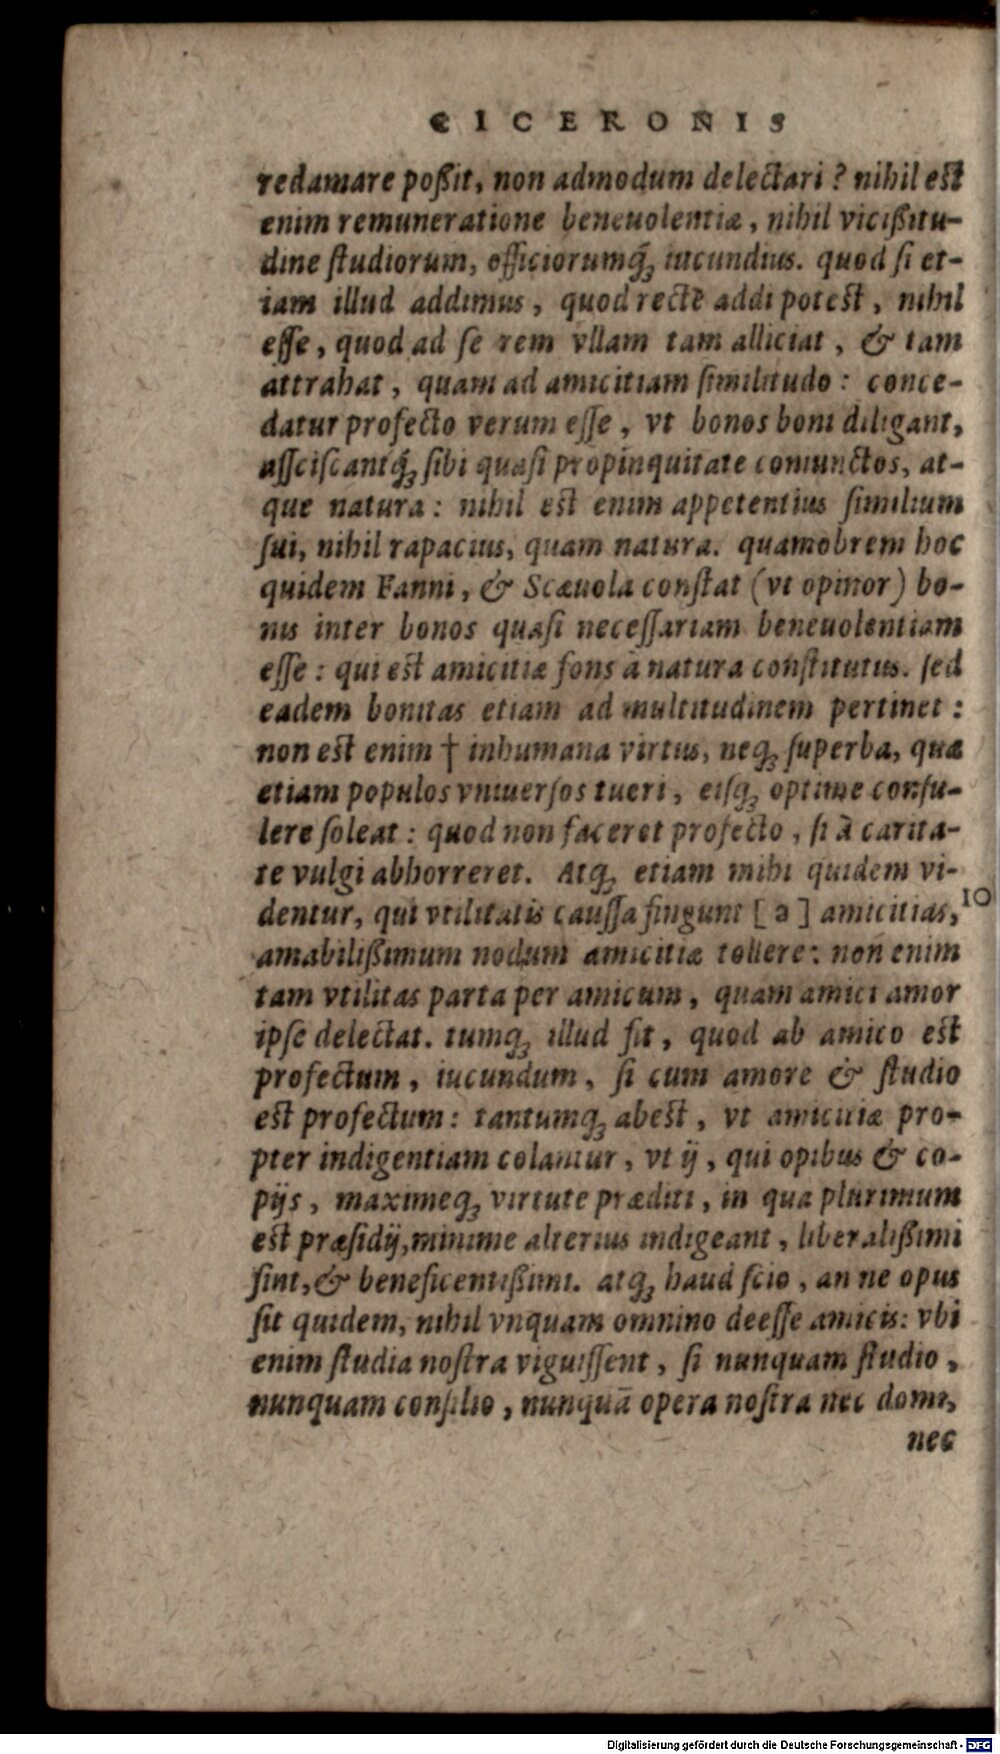 CICERONIS
redamare poßit, non admodum delectari? nihil est
enim remuneratione beneuolentiæ, nihil vicißitu-
dine ſtudiorum, officiorumq́ꝫ iucundius. quod ſi et-
iam illud addimus, quod rectè addi potest, nihil
eſſe, quod ad ſe rem vllam tam alliciat, & tam
attrahat, quam ad amicitiam ſimilitudo: conce-
datur profecto verum eſſe, vt bonos boni diligant,
aſſciſcantq́ꝫ ſibi quaſi propinquitate coniunctos, at-
que natura: nihil est enim appetentius ſimilium
ſui, nihil rapacius, quam natura. quamobrem hoc
quidem Fanni, & Scæuola conſtat (vt opinor) bo-
nis inter bonos quaſi neceſſariam beneuolentiam
eſſe: qui est amicitiæ fons à natura conſtitutus. ſed
eadem bonitas etiam ad multitudinem pertinet:
non est enim † inhumana virtus, neqꝫ ſuperba, quæ
etiam populos vniuerſos tueri, eiſqꝫ optime conſu-
lere ſoleat: quod non faceret profecto, ſi à carita-
te vulgi abhorreret. Atqꝫ etiam mihi quidem vi-
dentur, qui vtilitatis cauſſa fingunt [a] amicitias, 10
amabilißimum nodum amicitiæ tollere: non enim
tam vtilitas parta per amicum, quam amici amor
ipſe delectat. tumqꝫ illud fit, quod ab amico est
profectum, iucundum, ſi cum amore & ſtudio
est profectum: tantumqꝫ abest, vt amicitiæ pro-
pter indigentiam colantur, vt ij, qui opibus & co-
pijs, maximeqꝫ virtute præditi, in qua plurimum
est præſidij, minime alterius indigeant, liberalißimi
ſint, & beneficentißimi. atqꝫ haud ſcio, an ne opus
ſit quidem, nihil vnquam omnino deeſſe amicis: vbi
enim ſtudia noſtra viguiſſent, ſi nunquam ſtudio,
nunquam conſilio, nunquā opera noſtra nec domi,
nec
Digitalisierung gefördert durch die Deutsche Forschungsgemeinschaft - DFG